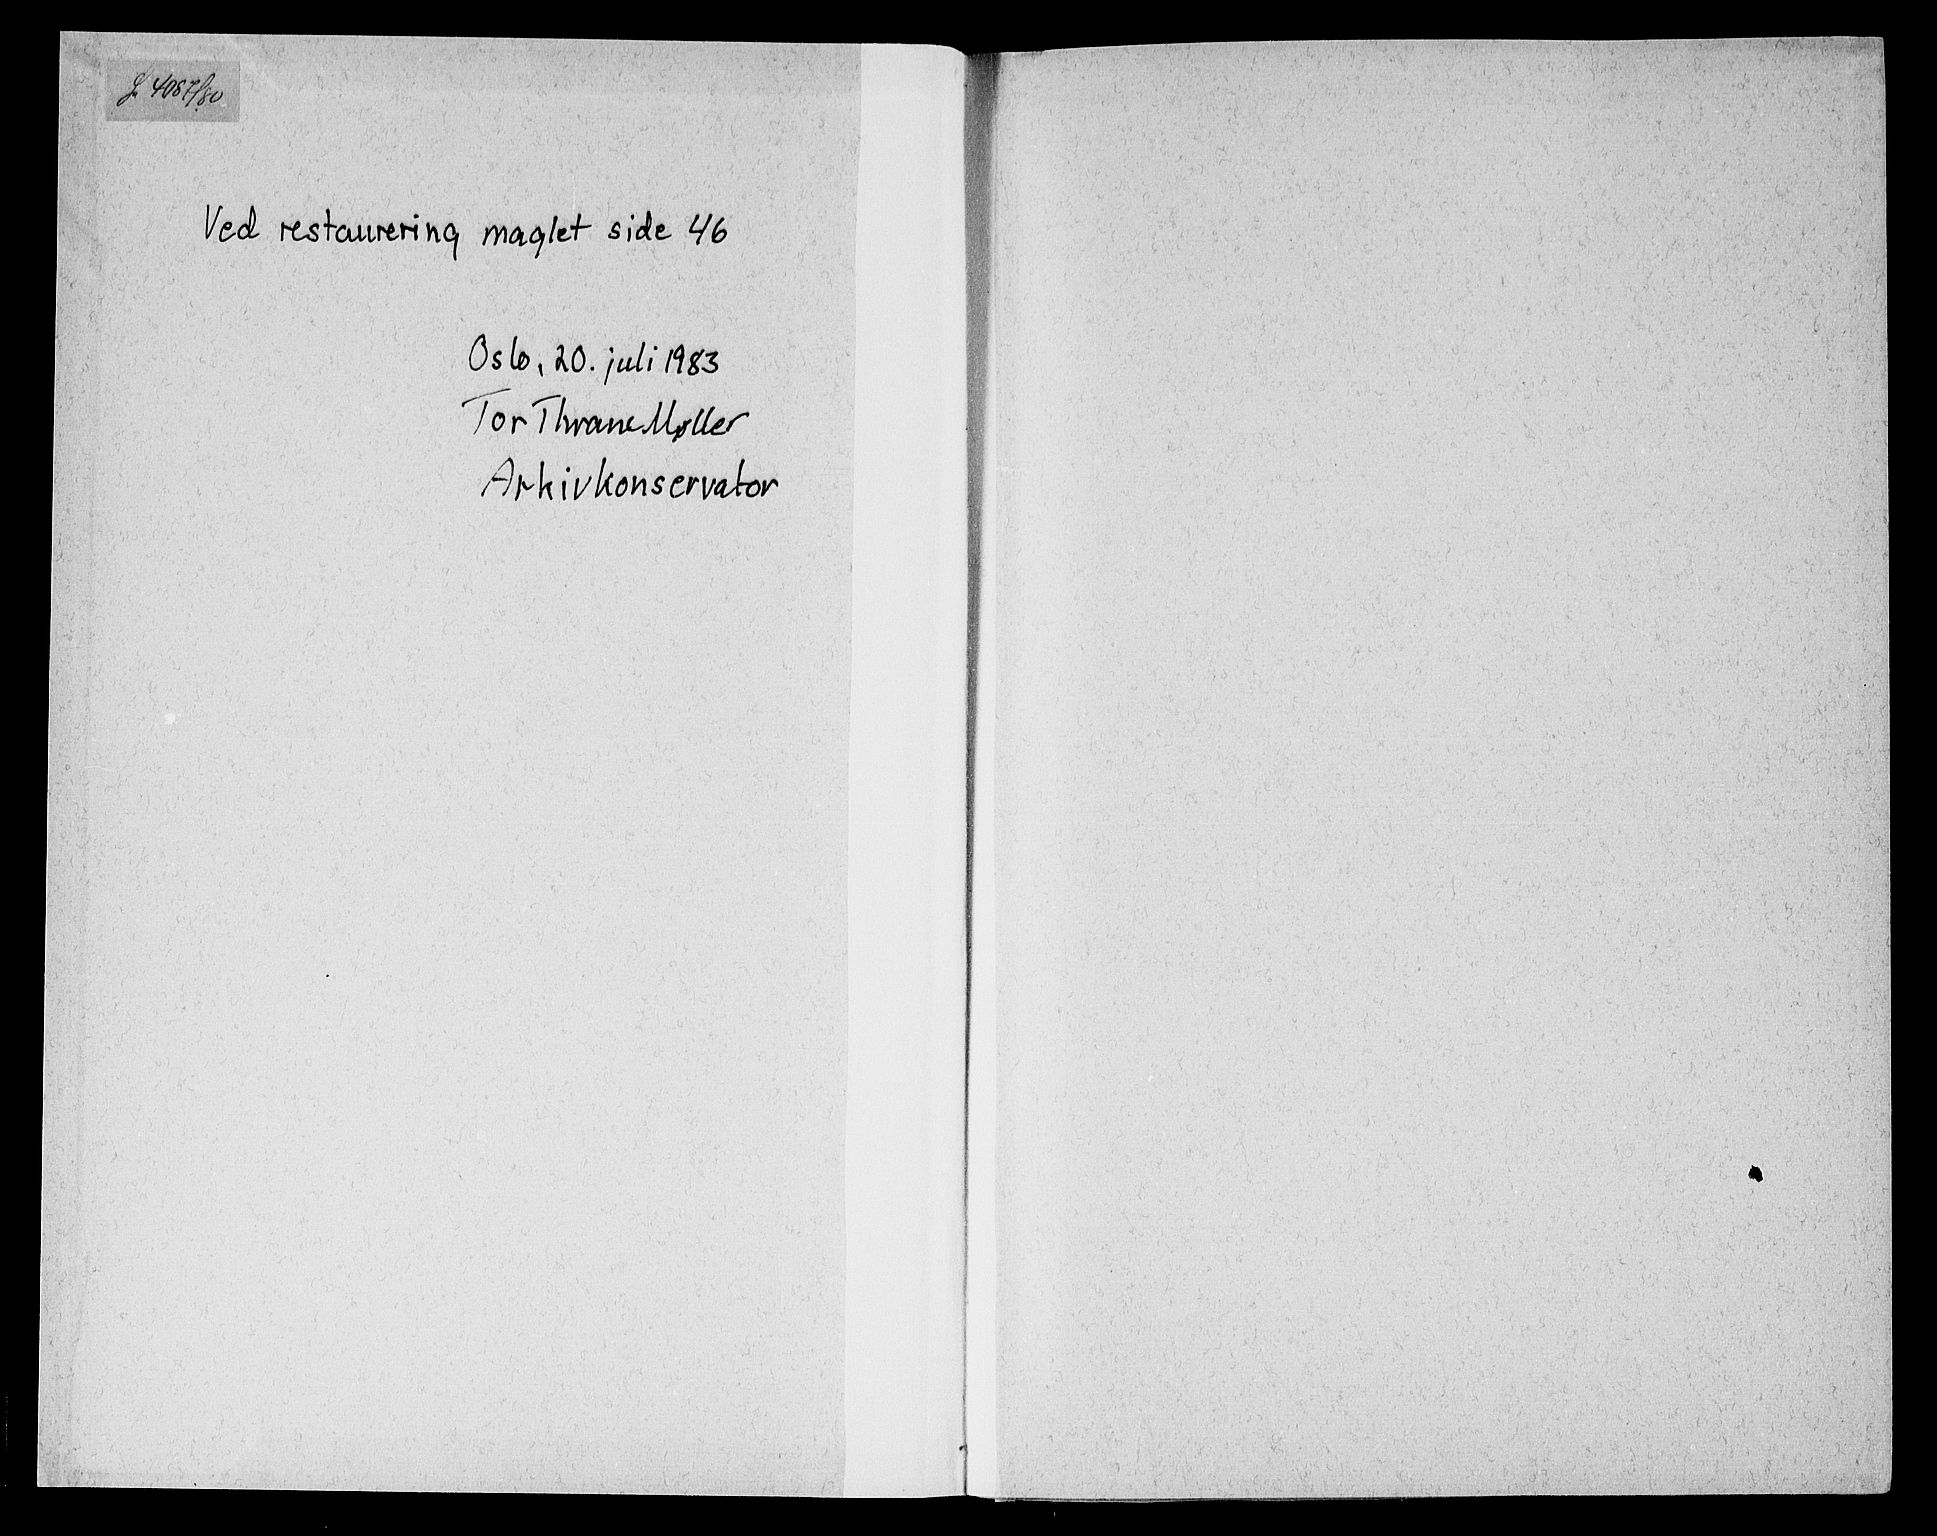 J. 4087/80
Ved restaurering maglet side 46
Oslo, 20. juli 1983
Tor Thrane Møller
Arkivkonservator